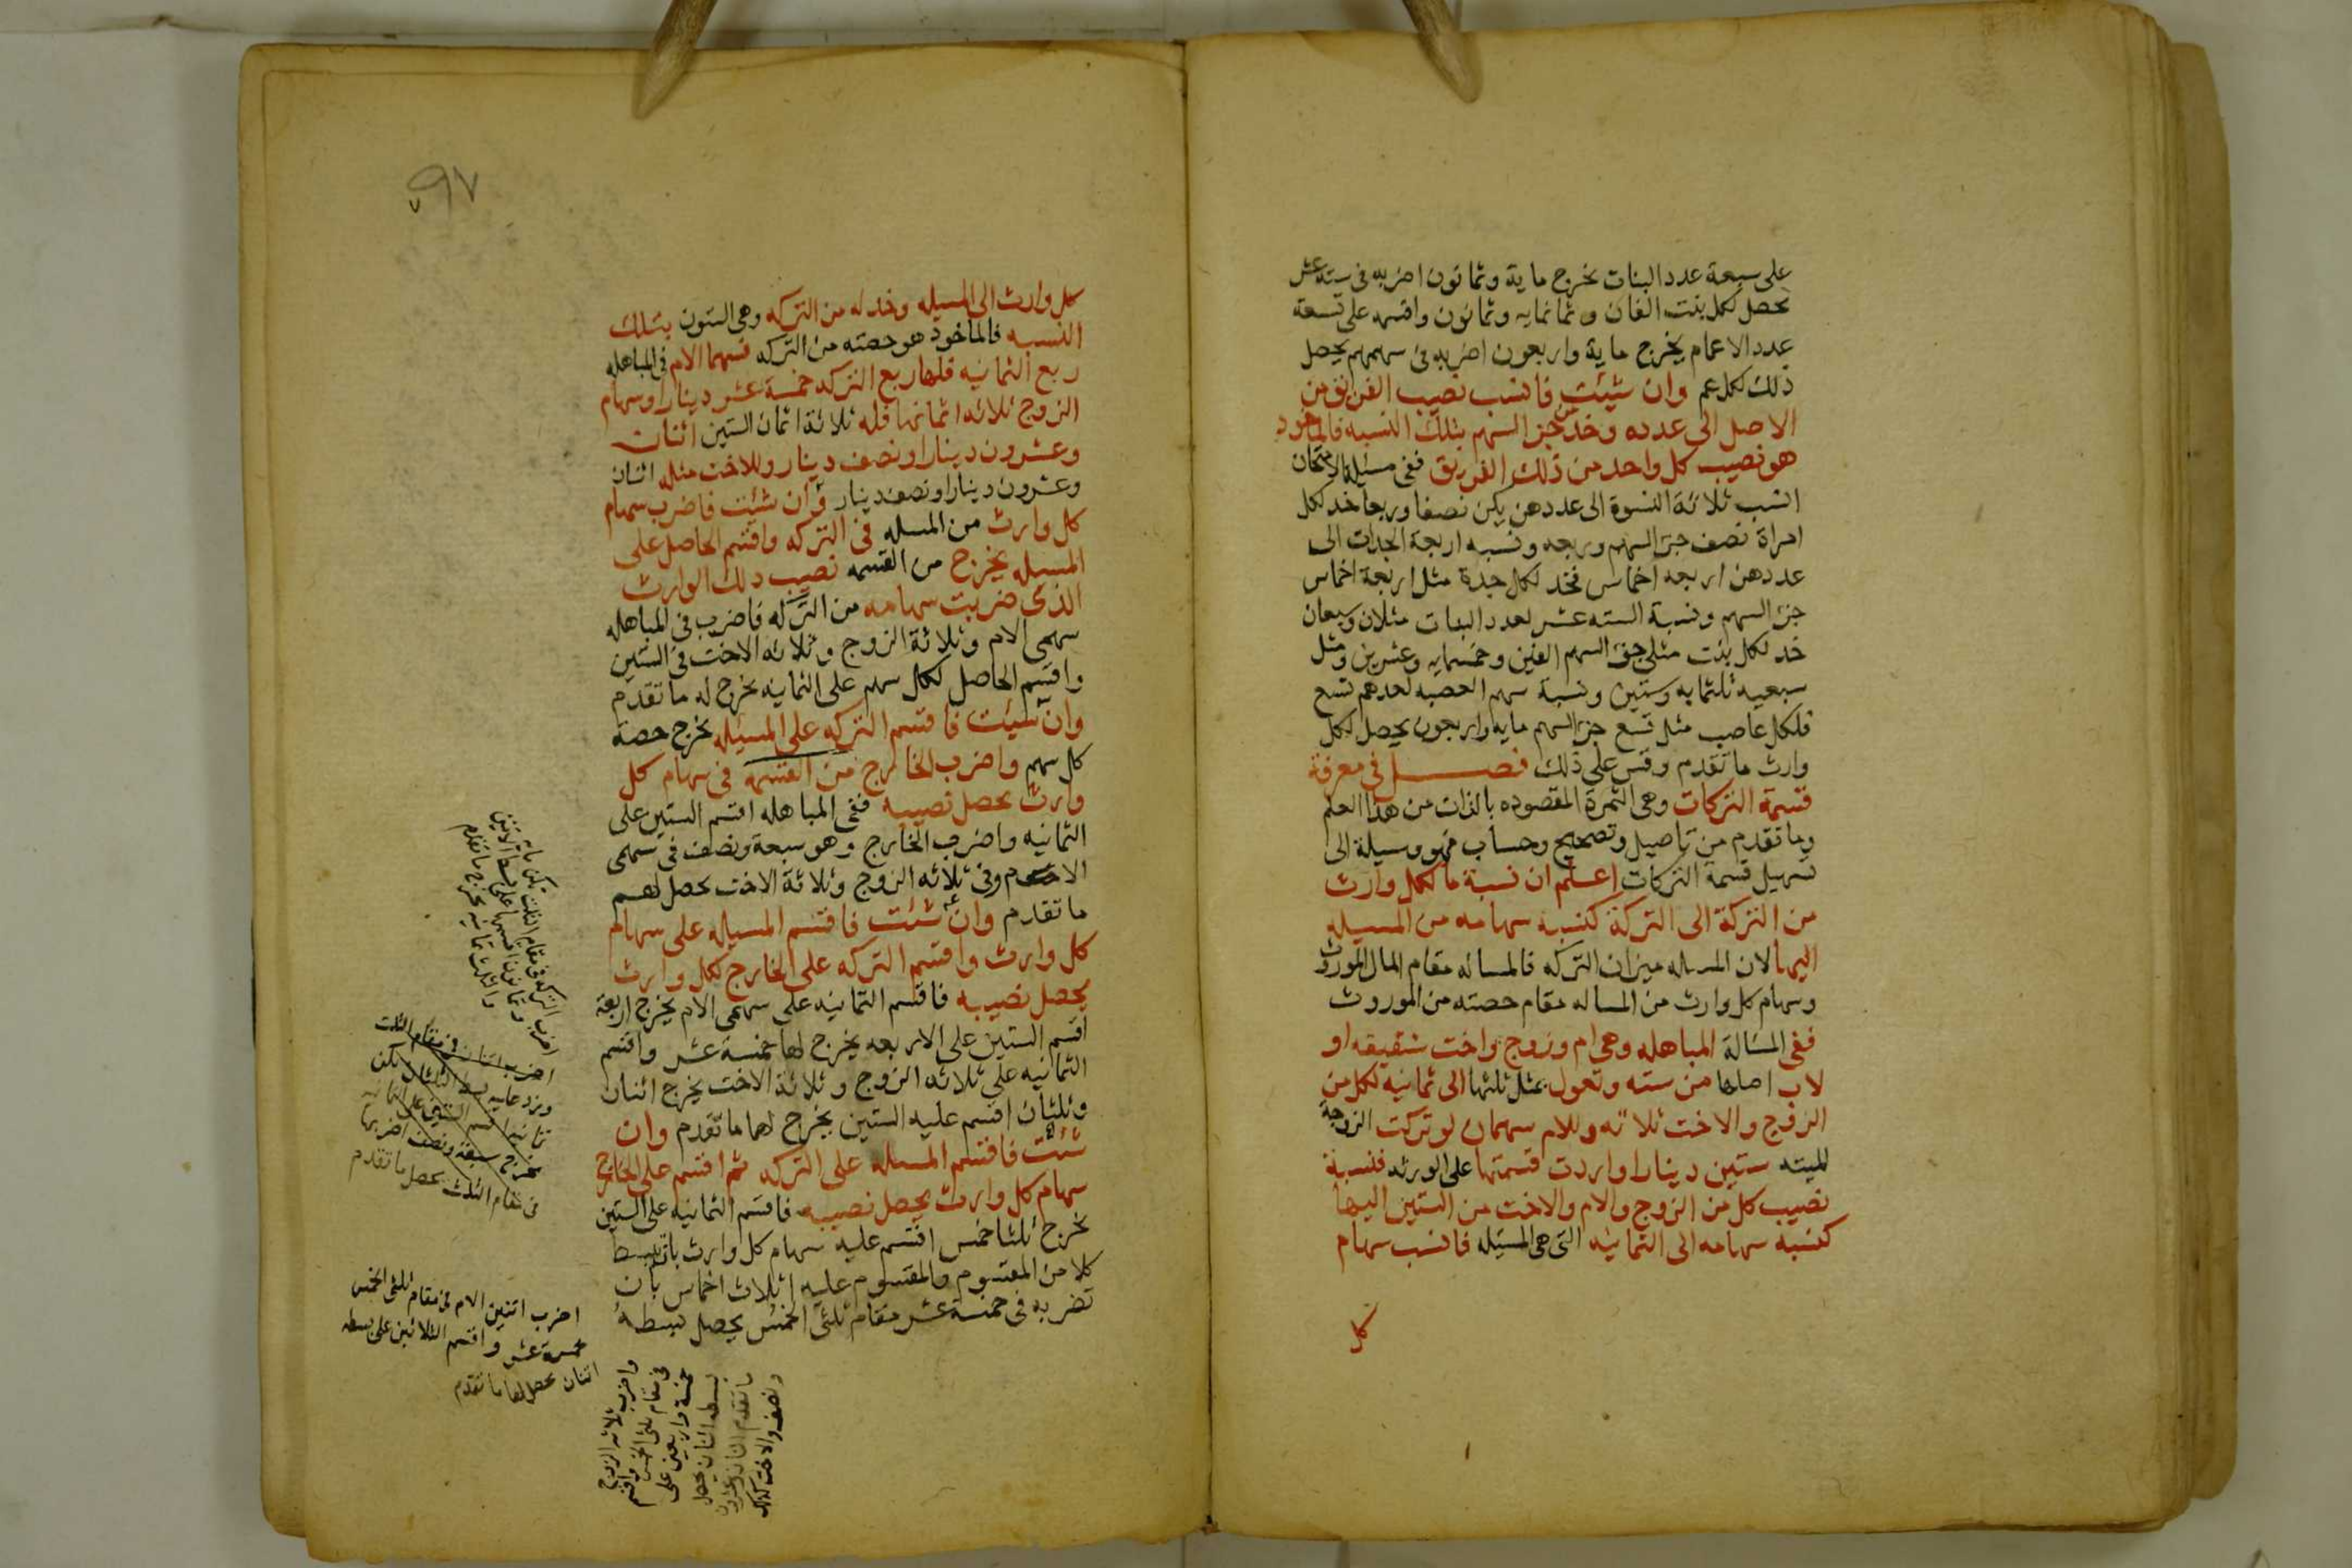 على سبعة عدد البنات يخرج ماية وثمانون اضربه فى ستة عشر
يحصل لكل بنت الفان وثمانمايه وثمانون واقسمه على تسعة
عدد الاعمام يخرج ماية واربعون اضربه فى سهمهم يحصل
ذلك لكل عم وان شيئت فانسب نصيب الفريق من
الاصل الى عدده وخذ من جز السهم بتلك النسبه فالماخوذ
هو نصيب كل واحد من ذلك الفريق ففى مسيلة الامتحان
انسب ثلاثة النسوة الى عددهن يكن نصفا وربعا خد لكل
امراة نصف جز السهم وربعه ونسبه اربعة الجدات الى
عددهن اربعه اخماس فخد لكل جدة مثل اربعة اخماس
جز السهم ونسبة السته عشر لعدد البنات مثلان وسبعان
خد لكل بنت مثلى جز السهم الفين وخمسمايه وعشرين ومثل
سبعيه ثلثمايه وستين ونسبة سهم العصبه لعددهم تسع
فلكل عاصب مثل تسع جز السهم مايه واربعون يحصل لكل
وارث ما تقدم وقس على ذلك فصل فى معرفة
قسمة التركات وهى الثمرة المقصوده بالذات من هذا العلم
وما تقدم من تاصيل وتصحيح وحساب فهو وسيلة الى
تسهيل قسمة التركات اعلم ان نسبة ما لكل وارث
من التركة الى التركة كنسبة سهامه من المسيله
اليها لان المسله ميزان التركه فالمساله مقام المال الموروث
وسهام كل وارث من المساله مقام حصته من الموروث
ففى المسالة المباهله وهى ام وزوج واخت شقيقه او
لاب اصلها من سته وتعول بمثل ثلثها الى ثمانيه لكل من
الزوج والاخت ثلاثه وللام سهمان لو تركت الزوجة
الميته ستين دينارا واردت قسمتها على الورثه فنسبة
نصيب كل من الزوج والام والاخت من الستين اليها
كنسبة سهامه الى الثمانيه التى هى المسيله فانسب سهام
كل
٩٧
كل وارث الى المسيله وخذ له من التركه وهى الستون بتلك
النسبه فالماخوذ هو حصته من التركه فسهما الام فى المباهله
ربع الثمانيه فلها ربع التركه خمسة عشر دينارا وسهام
الزوج ثلاثه اثمانها فله ثلاثة اثمان الستين اثنان
وعشرون دينارا ونصف دينار وللاخت مثله اثنان
وعشرون دينارا ونصف دينار وان شيئت فاضرب سهام
كل وارث من المسله فى التركه واقسم الحاصل على
المسيله يخرج من القسمه نصيب ذلك الوارث
الذى ضربت سهامه من التركه فاضرب فى المباهله
سهمى الام وثلاثة الزوج وثلاثه الاخت فى الستين
واقسم الحاصل لكل سهم على الثمانيه يخرج له ما تقدم
وان شيئت فاقسم التركه على المسيله يخرج حصة
كل سهم واضرب الخارج من القسمه فى سهام كل
وارث يحصل نصيبه ففى المباهله اقسم الستين على
الثمانيه واضرب الخارج وهو سبعة ونصف فى سهمى
الام وفى ثلاثه الزوج وثلاثة الاخت يحصل لهم
ما تقدم وان شئت فاقسم المسيله على سهام
كل وارث واقسم التركه على الخارج لكل وارث
يحصل نصيبه فاقسم الثمانيه على سهمى الام يخرج اربعة
اقسم الستين على الاربعه يخرج لها خمسة عشر واقسم
الثمانيه على ثلاثه الزوج وثلاثة الاخت يخرج اثنان
وثلثان اقسم عليه الستين يخرج لهما ما تقدم وان
شئت فاقسم المسله على التركه ثم اقسم على الخارج
سهام كل وارث يحصل نصيبه فاقسم الثمانيه على الستين
يخرج ثلثا خمس اقسم عليه سهام كل وارث بان تبسط
كلا من المقسوم والمقسوم عليه اثلاث اخماس بان
تضربه فى خمسة عشر مقام ثلثى الخمس يحصل بسطه
اضرب التركه فى مقام الثلث يكن مايه
وثمانون اقسمها على بسط الاثنين
والثلث ثمانيه يخرج ما تقدم
اضرب اثنان فى مقام الثلث
وزد عليه بسط الثلثان يكن
ثمانيه اقسم الستين على الثمانيه
يخرج سبعة ونصف اضربها
فى مقام الثلث يحصل ما تقدم
اضرب اثنين الام فى مقام ثلثى الخمس
خمسة عشر واقسم الثلاثين على بسطه
اثنان يحصل لها ما تقدم
واضرب ثلاثه الزوج
فى مقام ثلثى الخمس واقسم
خمسة واربعين على
بسطه اثنان يحصل
ما تقدم اثنان وعشرون
ونصف والاخت كذلك